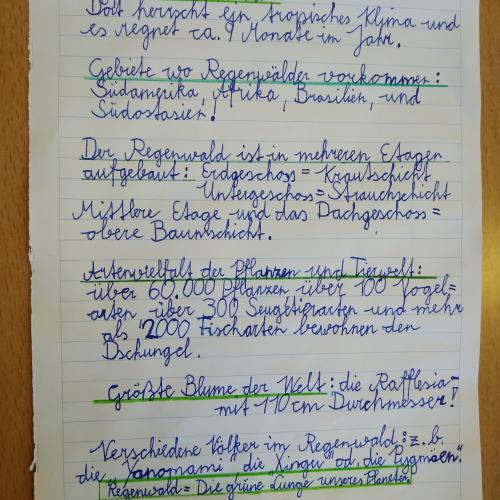 Dort herrscht ein tropisches Klima und
es regnet ca. 9 Monate im Jahr.
Gebiete wo Regenwälder vorkommen:
Südamerika, Afrika, Brasilien, und
Südostasien!
Der Regenwald ist in mehreren Etagen
aufgebaut: Erdgeschoss = Krautschicht
Untergeschoss = Strauchschicht
Mittlere Etage und das Dachgeschoss =
obere Baumschicht.
Artenvielfalt der Pflanzen und Tierwelt:
über 60.000 Pflanzen über 100 Vogel=
arten über 300 Seugetierarten und mehr
als 2000 Fischarten bewohnen den
Dschungel.
Größte Blume der Welt: die Rafflesia-
mit 110 cm Durchmesser!
Verschiedene Völker im Regenwald: z.b.
die Yanomami, die "Xingu" od. die Pygmäen.
Regenwald = Die grüne Lunge unseres Planeten.